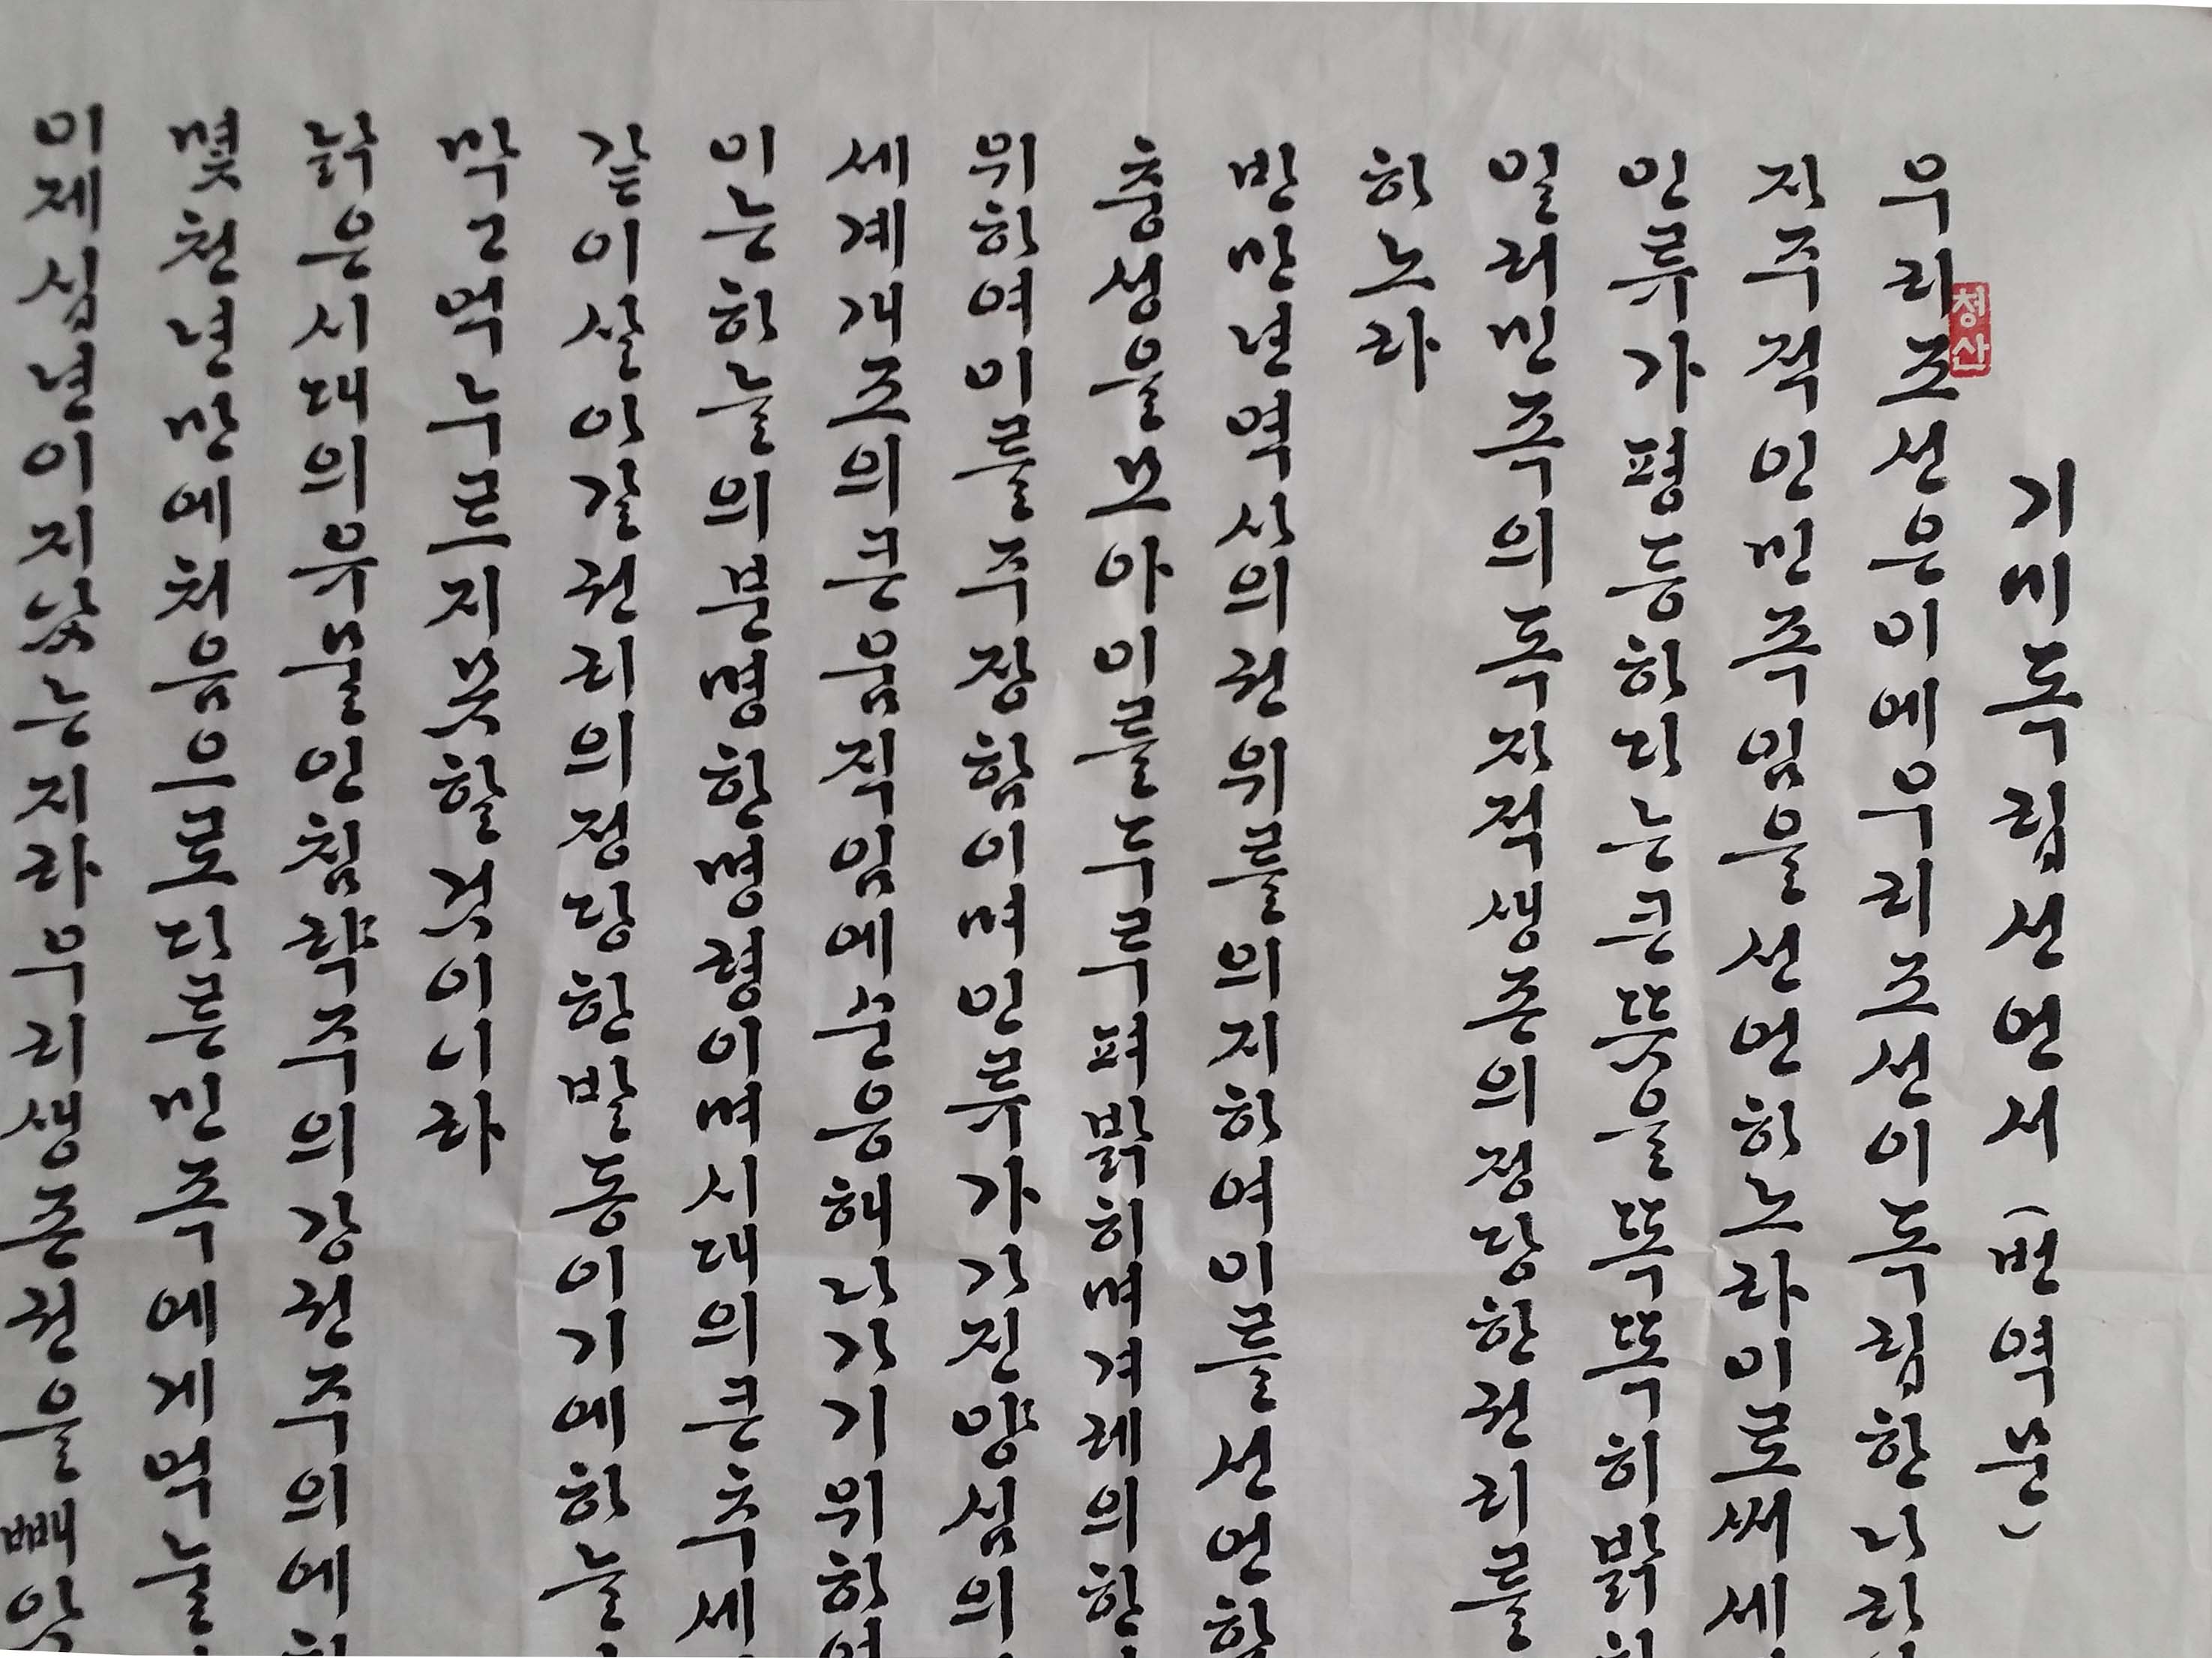 기미독립선언서 (번역문)
청산
우리조선은이에우리조선이독립한나라
자주적인민족임을선언하노라이로써세
인류가평등하다는큰뜻을똑똑히밝히
일러민족의독자적생존의정당한권리를
하노라
반만년역사의권위를의지하여이를선언함
충성을모아이를두루펴밝히며겨레의한
위하여이를주장함이며인류가가진양심의
세계개조의큰움직임에순응해나가기위하여
이는하늘의분명한명령이며시대의큰추세
같이살아갈권리의정당한발동이기에하늘
막고억누르지못할것이니라
낡은시대의유물인침략주의강권주의에
몇천년만에처음으로다른민족에게억눌
이제십년이지났는지라우리생존권을빼앗